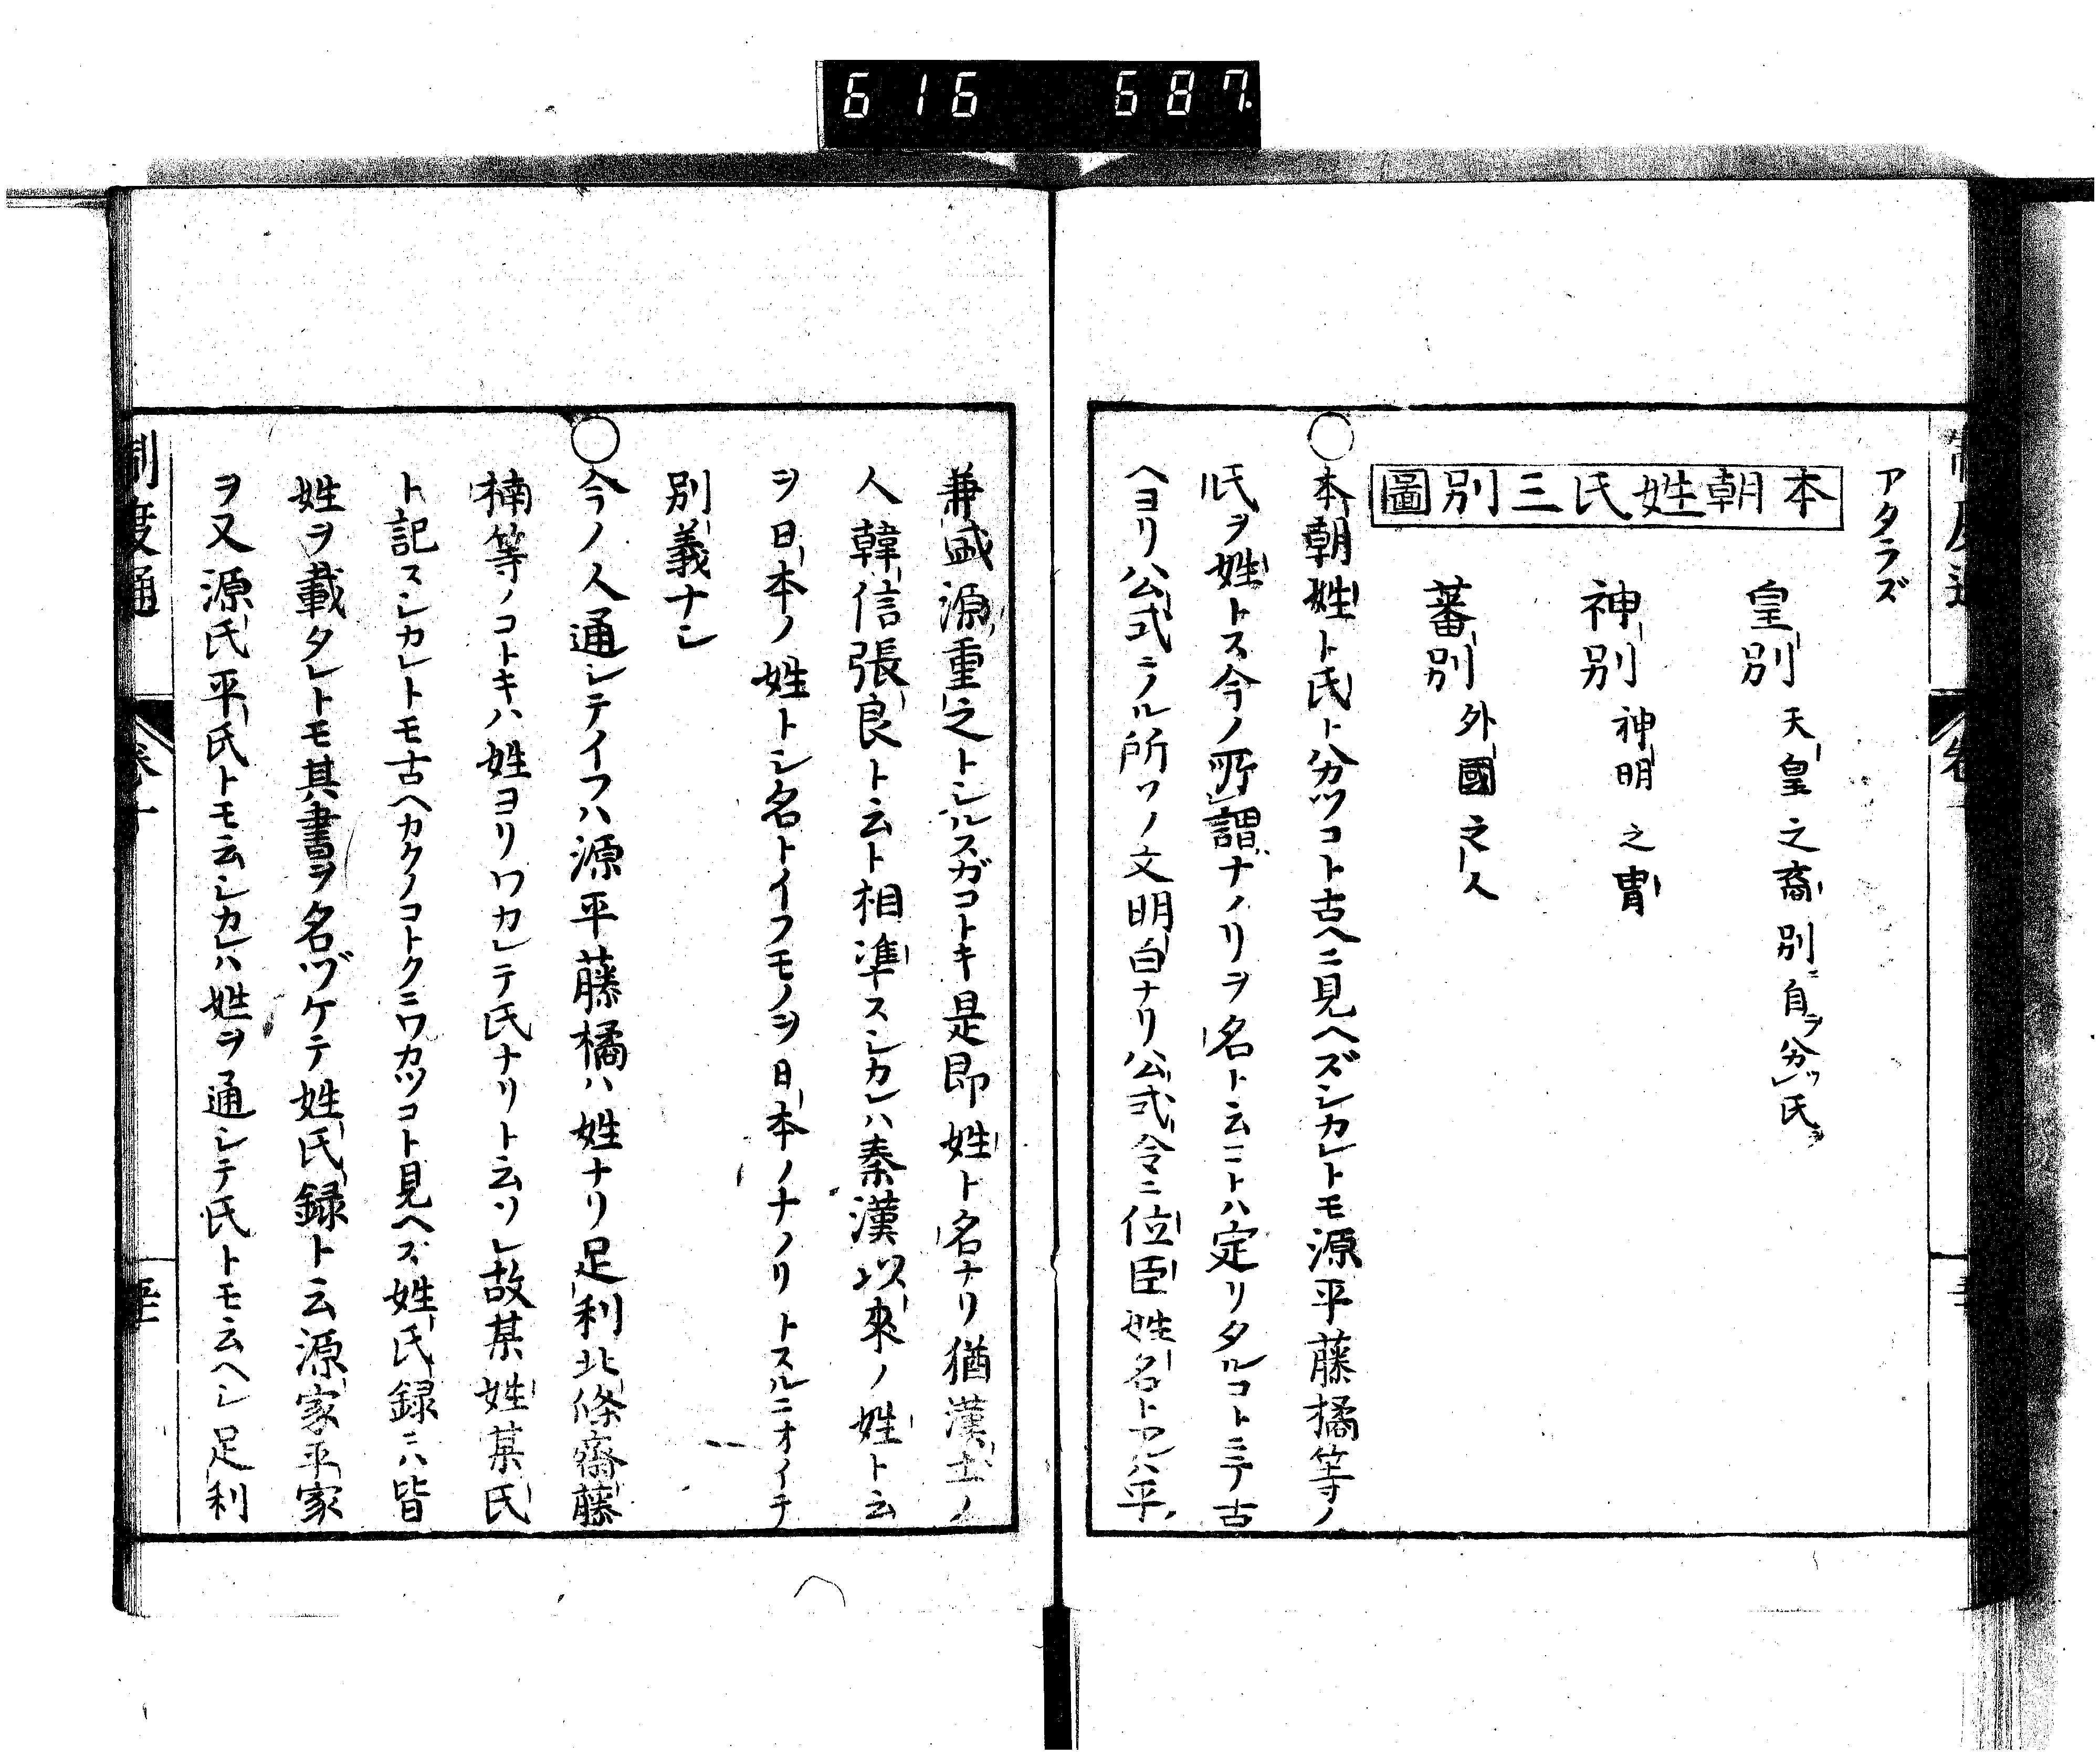 616 687.
アタラズ
本朝姓氏三別圖
皇別 天皇之裔別ニ自ラ分ツ氏ヲ
神別 神明之冑
蕃別 外國之人
○本朝姓ト氏ト分ツコト古ヘニ見ヘズシカレトモ源平藤橘等ノ
氏ヲ姓トス今ノ所謂ナノリヲ名ト云コトハ定リタルコトニテ古
ヘヨリ公式ニノル所ソノ文明白ナリ公式令ニ位臣姓名トアルハ平
兼盛源重之トシルスガコトキ是即姓ト名ナリ猶漢土ノ
人韓信張良ト云ト相準スシカレハ秦漢以來ノ姓ト云
ヲ日本ノ姓トシ名トイフモノヲ日本ノナノリトスルニオイテ
別義ナシ
○今ノ人通シテイフハ源平藤橘ハ姓ナリ足利北條齋藤
楠等ノコトキハ姓ヨリワカレテ氏ナリト云ソレ故某姓某氏
ト記スシカレトモ古ヘカクノコトクニワカツコト見ヘズ姓氏録ニハ皆
姓ヲ載タレトモ其書ヲ名ヅケテ姓氏録ト云源家平家
ヲ又源氏平氏トモ云シカレハ姓ヲ通シテ氏トモ云ヘシ足利
制度通 卷十